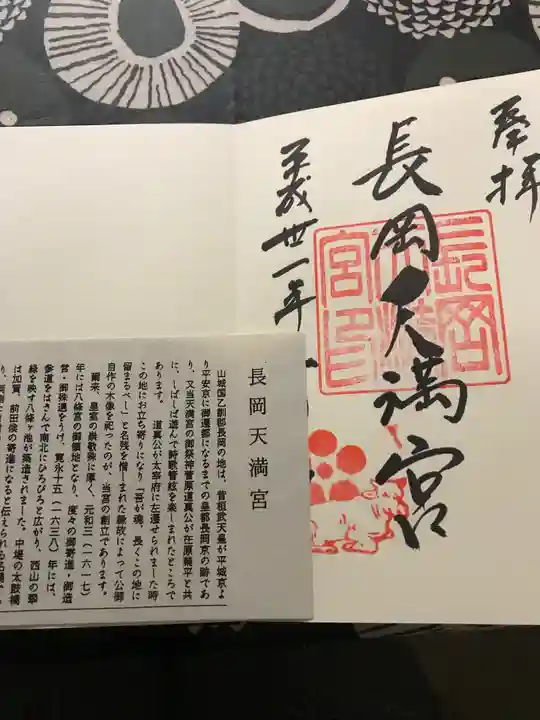 奉拝
長岡天満宮
平成丗一年
長岡天満宮
山城国乙訓郡長岡の地は、昔桓武天皇が平城京よ
り平安京に御遷都になるまでの皇都長岡京の跡であ
り、又当天満宮の御祭神菅原道真公が在原業平と共
に、しばしば遊んで詩歌管絃を楽しまれたところで
あります。　道真公が太宰府に左遷せられました時
この地にお立ち寄りになり「吾が魂、長くこの地に
留まるべし」と名残を惜しまれた縁故によって公御
自作の木像を祀ったのが、当宮の創立であります。
爾来、皇室の崇敬殊に厚く、元和三（一六一七）
年には八條宮の御領地となり、度々の御寄進・御造
営・御殊遇をうけ、寛永十五（一六三八）年には、
参道をはさんで南北にひろびろと広がり、西山の翠
緑を映す八條ヶ池が築造されました。中堤の太鼓橋
は加賀、前田侯の寄進になると伝えられる名橋